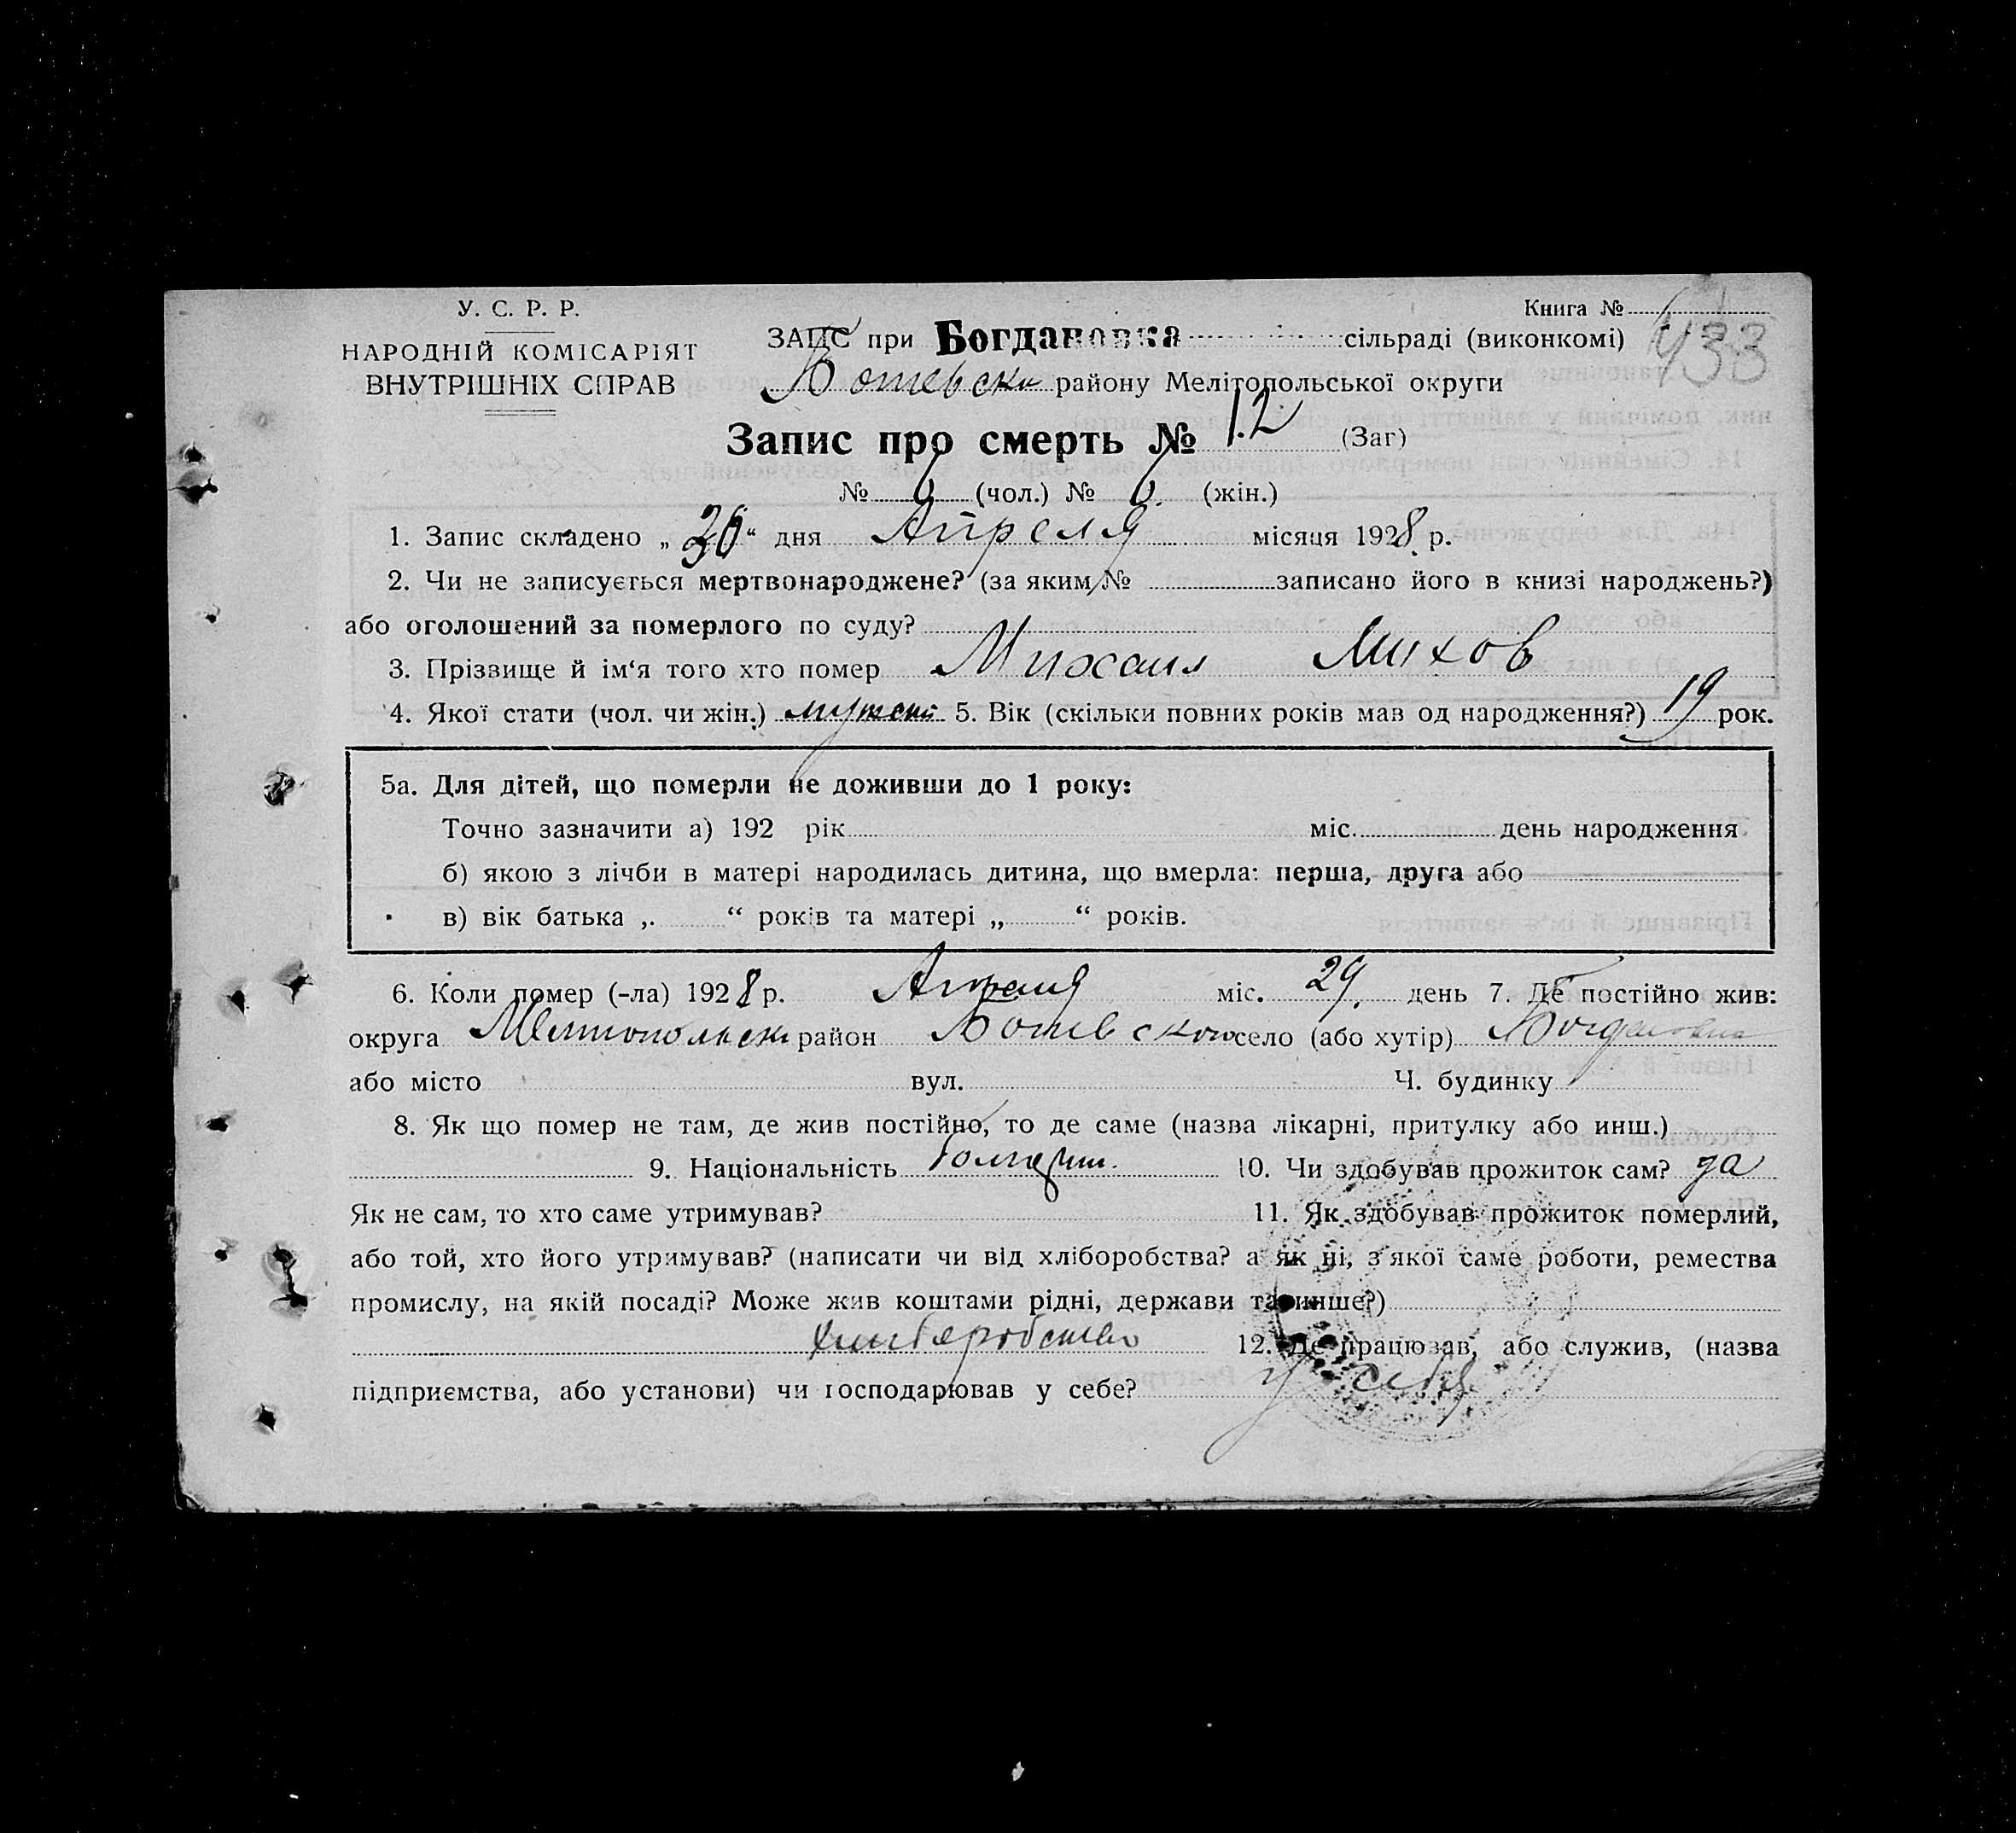 У. С. Р. Р.
НАРОДНІЙ КОМІСАРІЯТ
ВНУТРІШНІХ СПРАВ
Книга №
433
ЗАПС при Богдановка сільраді (виконкомі)
Ботевски району Мелітопольської округи
Запис про смерть № 12 (Заг)
№ (чол.) № (жін.)
1. Запис складено „ 30 “ дня Апреля місяця 1928 р.
2. Чи не записується мертвонароджене? (за яким № записано його в книзі народжень?)
або оголошений за померлого по суду?
3. Прізвище й ім‘я того хто помер Михаил
4. Якої стати (чол. чи жін.) 5. Вік (скільки повних років мав од народження?) 19 рок.
5а. Для дітей, що померли не доживши до 1 року:
Точно зазначити а) 192 рік міс. день народження
б) якою з лічби в матері народилась дитина, що вмерла: перша, друга або
в) вік батька „ “ років та матері „ “ років.
6. Коли помер (-ла) 1928 р. Апреля міс. 29 день 7. Де постійно жив:
округа Мелитопольски район Ботевского село (або хутір) Богдановка
або місто вул. Ч. будинку
8. Як що помер не там, де жив постійно, то де саме (назва лікарні, притулку або инш.)
9. Національність 10. Чи здобував прожиток сам? да
Як не сам, то хто саме утримував? 11. Як здобував прожиток померлий,
або той, хто його утримував? (написати чи від хліборобства? а як ні, з якої саме роботи, ремества
промислу, на якій посаді? Може жив коштами рідні, держави та инше?)
12. Де працював, або служив, (назва
підприємства, або установи) чи господарював у себе? у себя